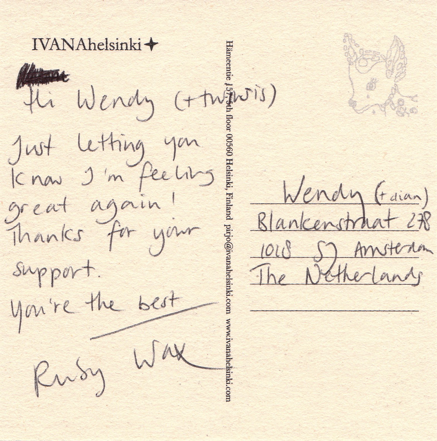 IVANAhelsinki
Hi Wendy (+ twinsis)
Just letting you
know I'm feeling
great again!
Thanks for your
support.
You're the best
Ruby Wax
Hämeentie 157, 5th floor 00560 Helsinki, Finland pirjo@ivanahelsinki.com www.ivanahelsinki.com
Wendy (+ dian)
Blankenstraat 278
1018 SJ Amsterdam
The Netherlands